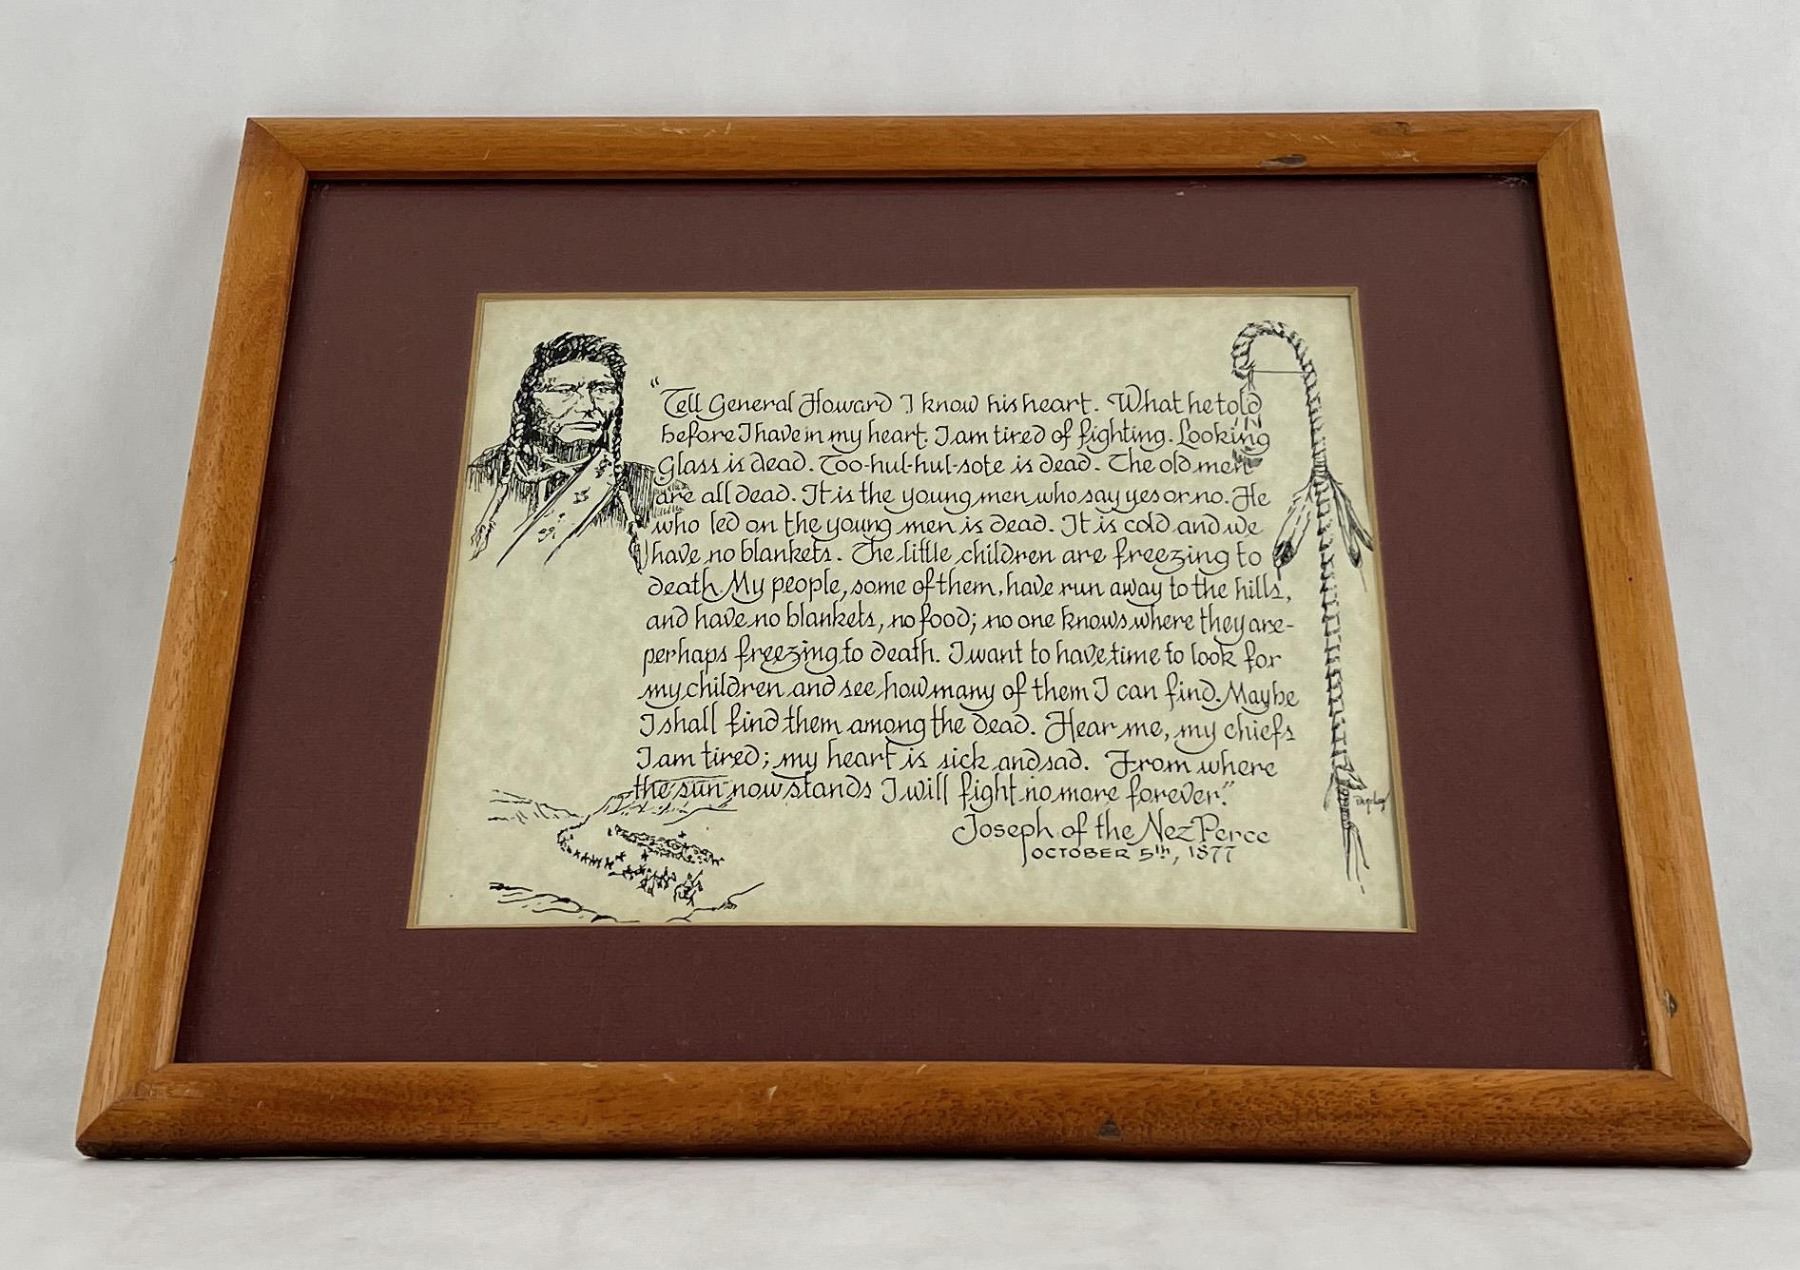 "Tell General Howard I know his heart. What he told
before I have in my heart. I am tired of fighting. Looking
Glass is dead. Too-hul-hul-sote is dead. The old men
are all dead. It is the young men who say yes or no. He
who led on the young men is dead. It is cold and we
have no blankets. The little children are freezing to
death. My people, some of them, have run away to the hills,
and have no blankets, no food; no one knows where they are-
perhaps freezing to death. I want to have time to look for
my children and see how many of them I can find. Maybe
I shall find them among the dead. Hear me, my chiefs
I am tired; my heart is sick and sad. From where
the sun now stands I will fight no more forever."
Joseph of the Nez Perce
OCTOBER 5th, 1877